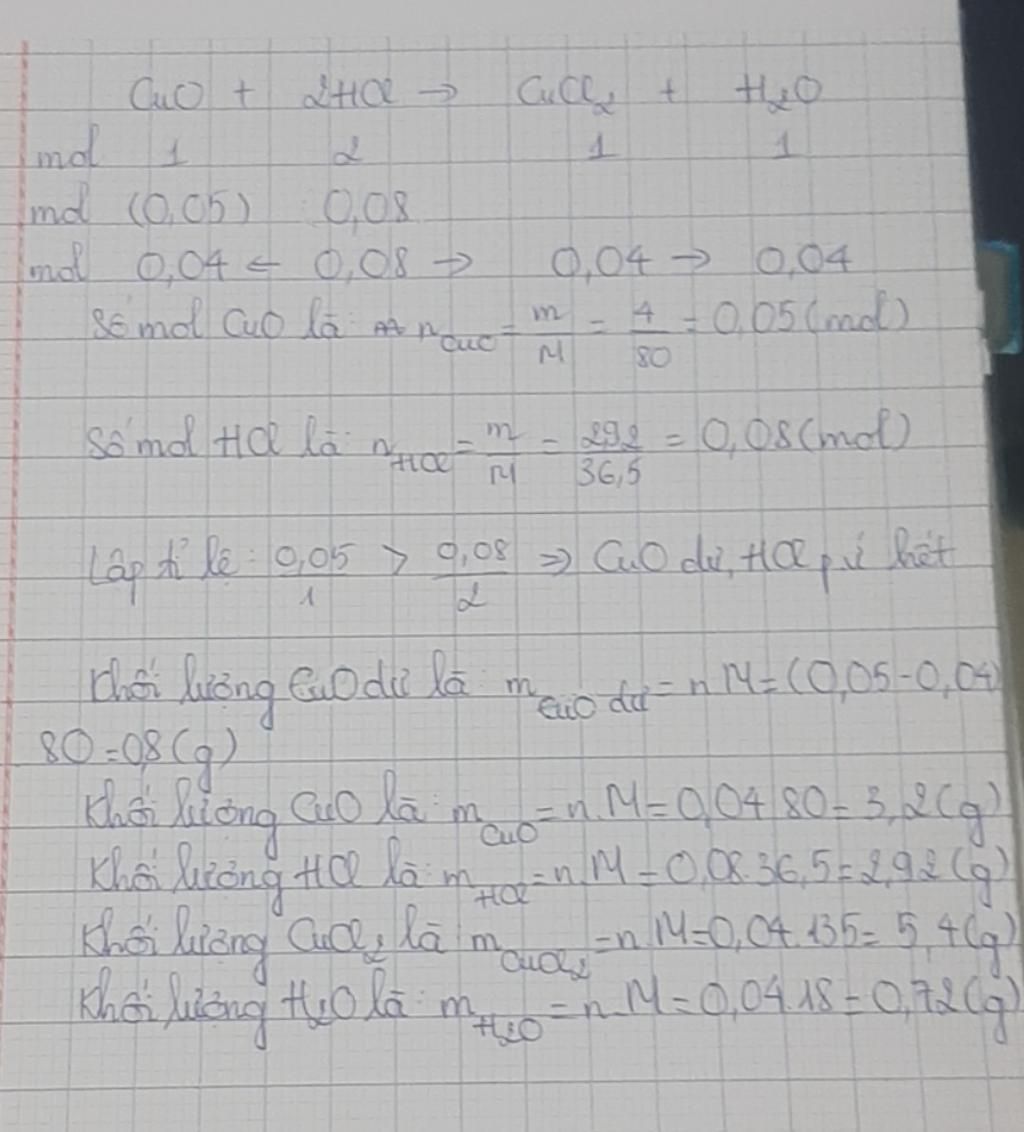 CuO + 2HCl → CuCl₂ + H₂O
mol 1 2 1 1
mol (0,05) 0,08
mol 0,04 ← 0,08 → 0,04 → 0,04
Số mol CuO là n_CuO = m/M = 4/80 = 0,05 (mol)
Số mol HCl là: n_HCl = m/M = 2,92/36,5 = 0,08 (mol)
Lập tỉ lệ: 0,05/1 > 0,08/2 ⇒ CuO dư, HCl pứ hết
Khối lượng CuO dư là m_CuO dư = n.M = (0,05 - 0,04)
80 = 0,8 (g)
Khối lượng CuO là: m_CuO = n.M = 0,04.80 = 3,2 (g)
Khối lượng HCl là: m_HCl = n.M = 0,08.36,5 = 2,92 (g)
Khối lượng CuCl₂ là m_CuCl₂ = n.M = 0,04.135 = 5,4 (g)
Khối lượng H₂O là: m_H₂O = n.M = 0,04.18 = 0,72 (g)